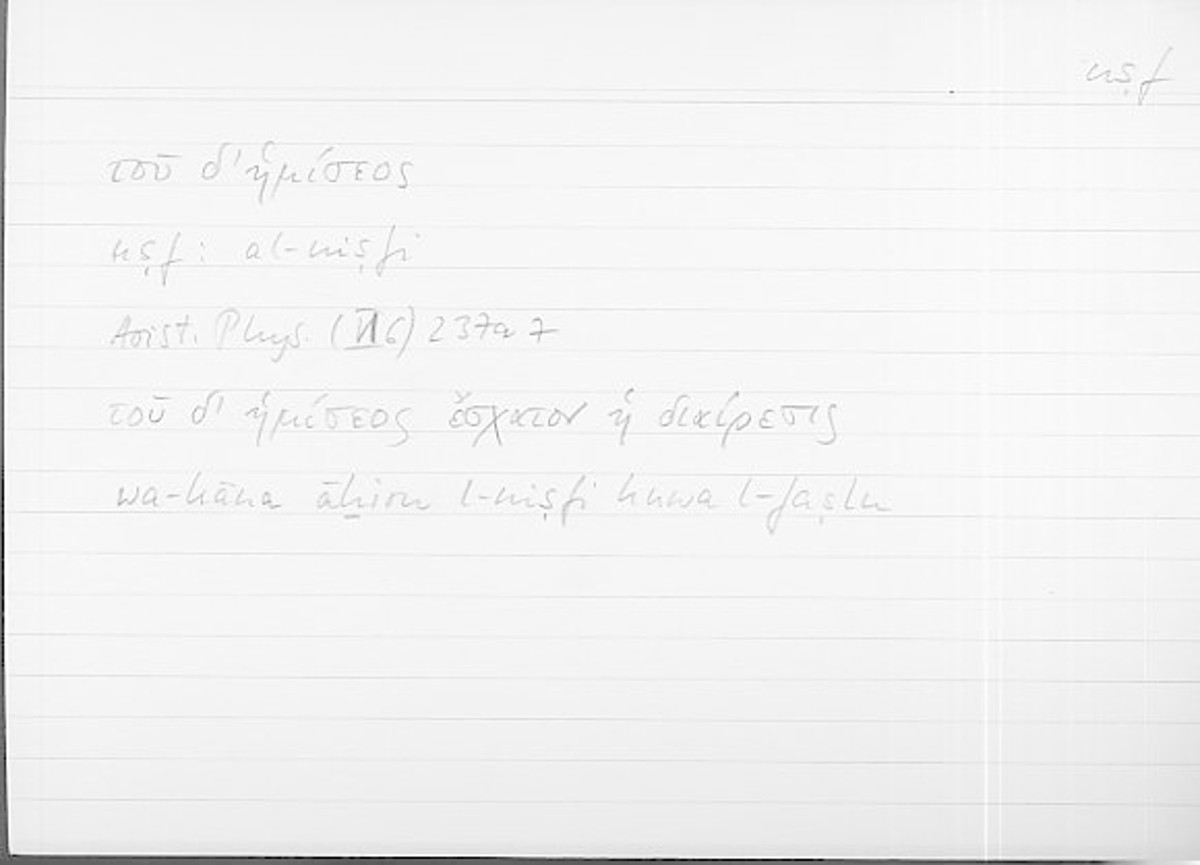 nṣf
τοῦ δ' ἡμίσεος
nṣf: al-niṣfi
Arist. Phys. (VI 6) 237a 7
τοῦ δ' ἡμίσεος ἔσχατον ἡ διαίρεσις
wa-kāna āḫiru l-niṣfi huwa l-faṣlu